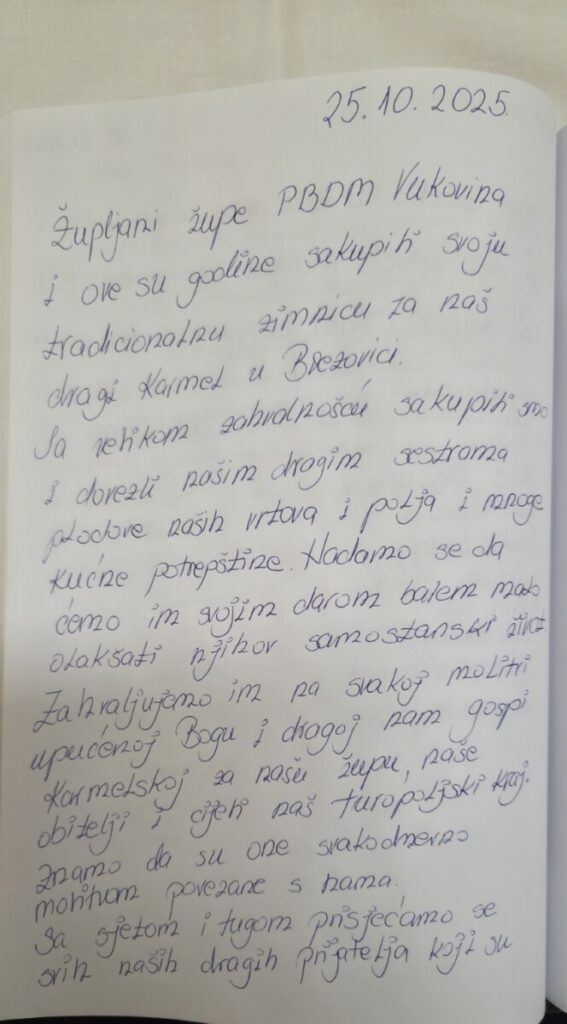 25.10.2025.
Župljani župe PBDM Vukovina
i ove su godine sakupili svoju
tradicionalnu zimnicu za naš
dragi Karmel u Brezovici.
Sa velikom zahvalnošću sakupili smo
i dovezli našim dragim sestrama
plodove naših vrtova i polja i mnoge
kućne potrepštine. Nadamo se da
ćemo im svojim darom barem malo
olakšati njihov samostanski život
Zahvaljujemo im na svakoj molitvi
upućenoj Bogu i dragoj nam gospi
Karmelskoj za našu župu, naše
obitelji i cijeli naš turopoljski kraj.
Znamo da su one svakodnevno
molitvom povezane s nama.
Sa sjetom i tugom prisjećamo se
svih naših dragih prijatelja koji su